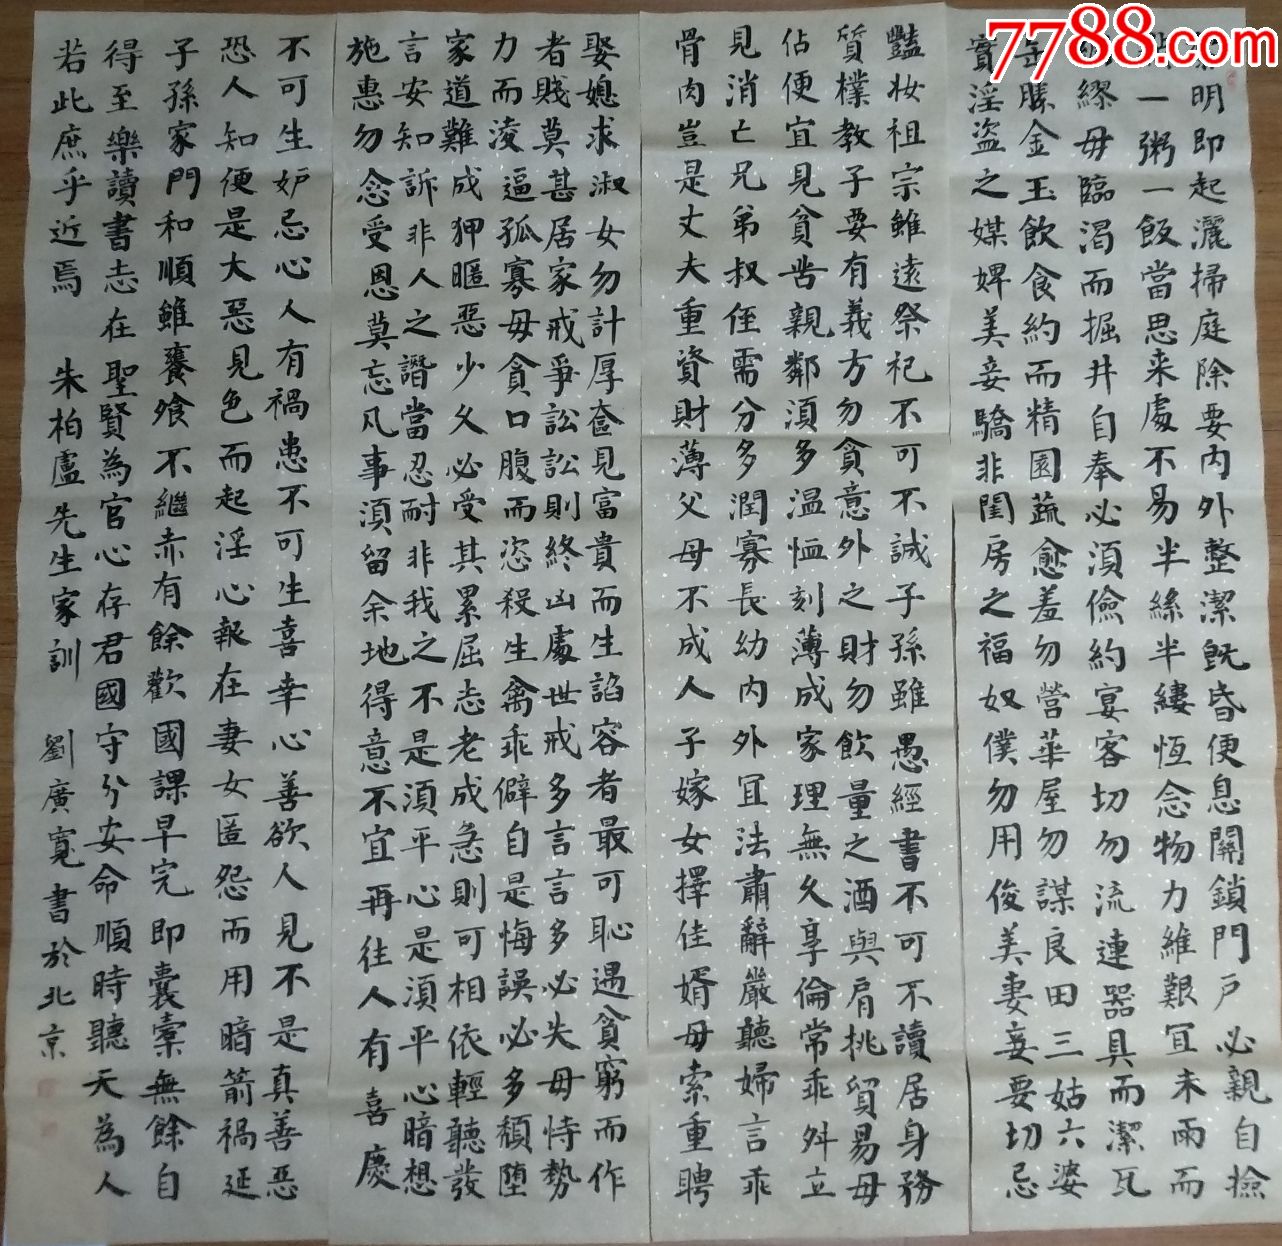 7788.com
明即起灑掃庭除要内外整潔既昏便息關鎖門戶必親自撿
一粥一飯當思来處不易半絲半縷恆念物力維艱宜未雨而
繆毋臨渴而掘井自奉必須儉約宴客切勿流連器具而潔瓦
缶勝金玉飲食約而精園蔬愈羞勿營華屋勿謀良田三姑六婆
實淫盜之媒婢美妾驕非閨房之福奴僕勿用俊美妻妾要切忌
豔妝祖宗雖遠祭祀不可不誠子孫雖愚經書不可不讀居身務
質樸教子要有義方勿貪意外之財勿飲量之酒與肩挑貿易毋
佔便宜見貧苦親鄰須多温恤刻薄成家理無久享倫常乖舛立
見消亡兄弟叔侄需分多潤寡長幼内外宜法肅辭嚴聽婦言乖
骨肉豈是丈夫重資財薄父母不成人子嫁女擇佳婿毋索重聘
娶媳求淑女勿計厚奩見富貴而生諂容者最可恥遇貧窮而作
者賤莫甚居家戒爭訟訟則終凶處世戒多言言多必失毋恃勢
力而淩逼孤寡毋貪口腹而恣殺生禽乖僻自是悔誤必多頹墮
家道難成狎暱惡少久必受其累屈志老成急則可相依輕聽發
言安知訴非人之譖當忍耐非我之不是須平心是須平心暗想
施惠勿念受恩莫忘凡事須留余地得意不宜再往人有喜慶
不可生妒忌心人有禍患不可生喜幸心善欲人見不是真善惡
恐人知便是大惡見色而起淫心報在妻女匿怨而用暗箭禍延
子孫家門和順雖饔飧不繼亦有餘歡國課早完即囊橐無餘自
得至樂讀書志在聖賢為官心存君國守分安命順時聽天為人
若此庶乎近焉 朱柏盧先生家訓 劉廣寬書於北京